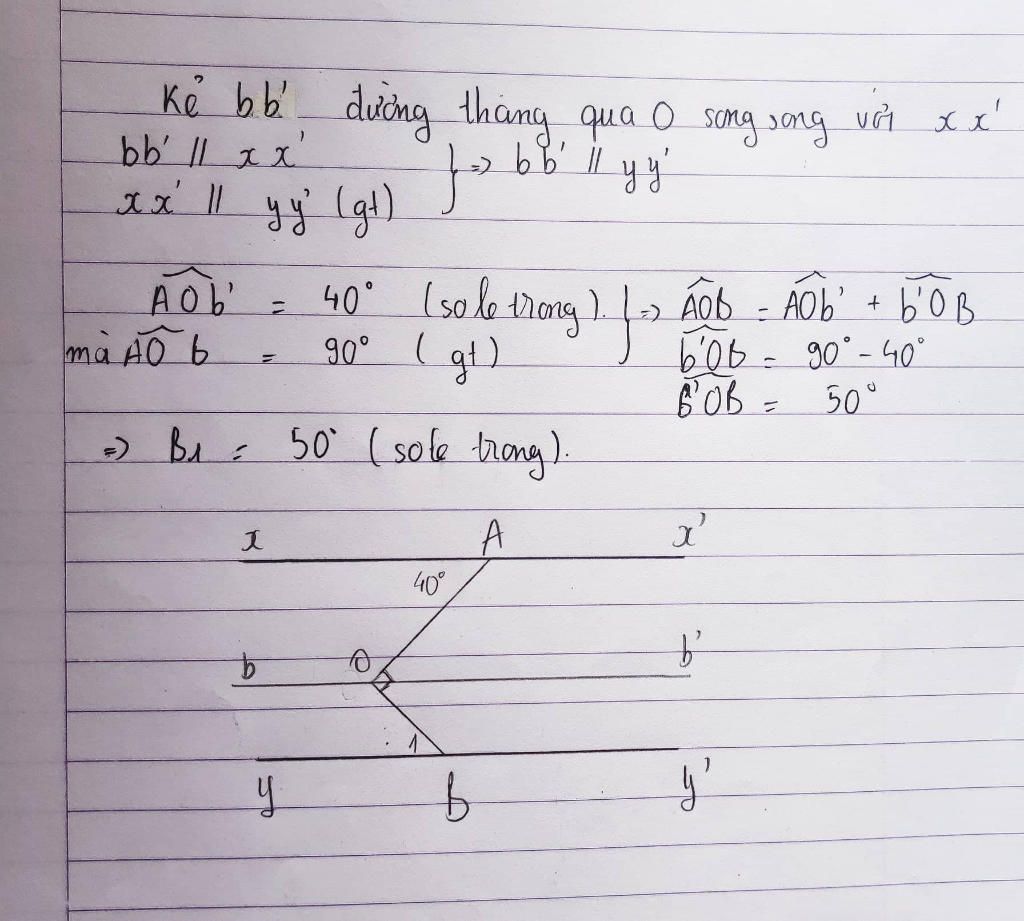 Kẻ bb' đường thẳng qua O song song với xx'
bb' // xx'
xx' // yy' (gt)
} => bb' // yy'
AOb' = 40° (so le trong).
mà AOb = 90° (gt)
} => AOB = AOb' + b'OB
b'OB = 90° - 40°
B'OB = 50°
=> B1 = 50° (so le trong).
x A x'
40°
b O b'
1
y B y'